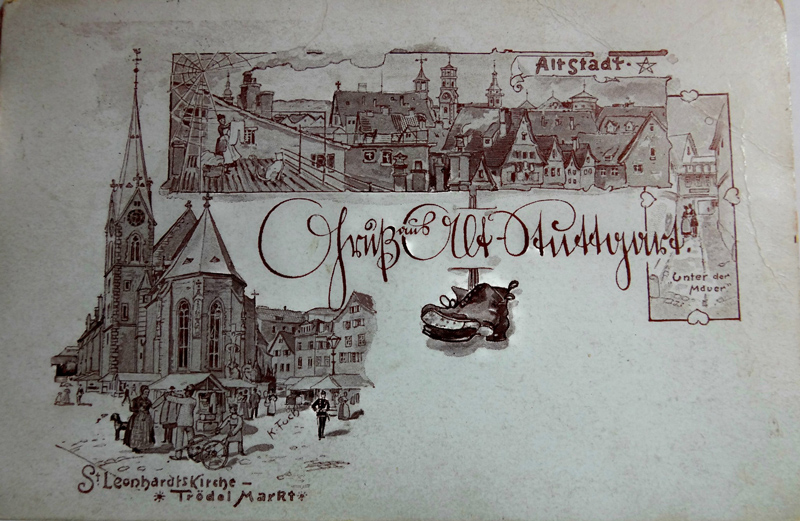 Altstadt.
Gruß aus Alt-Stuttgart.
Unter der
Mauer
St Leonhardtskirche –
* Trödel Markt *